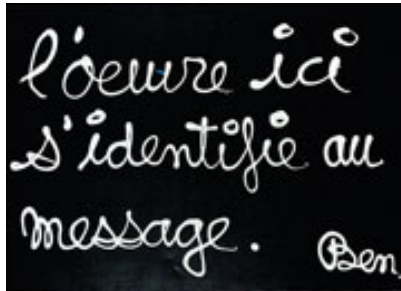 l'oeuvre ici
s'identifie au
message. Ben